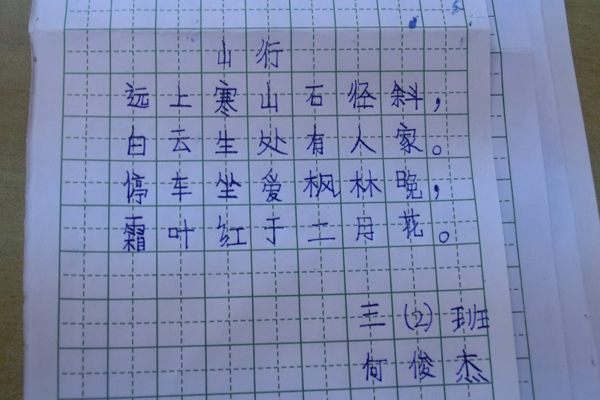 山行
远上寒山石怪斜，
白云生处有人家。
停车坐爱枫林晚，
霜叶红于二月花。
三（2）班
何俊杰